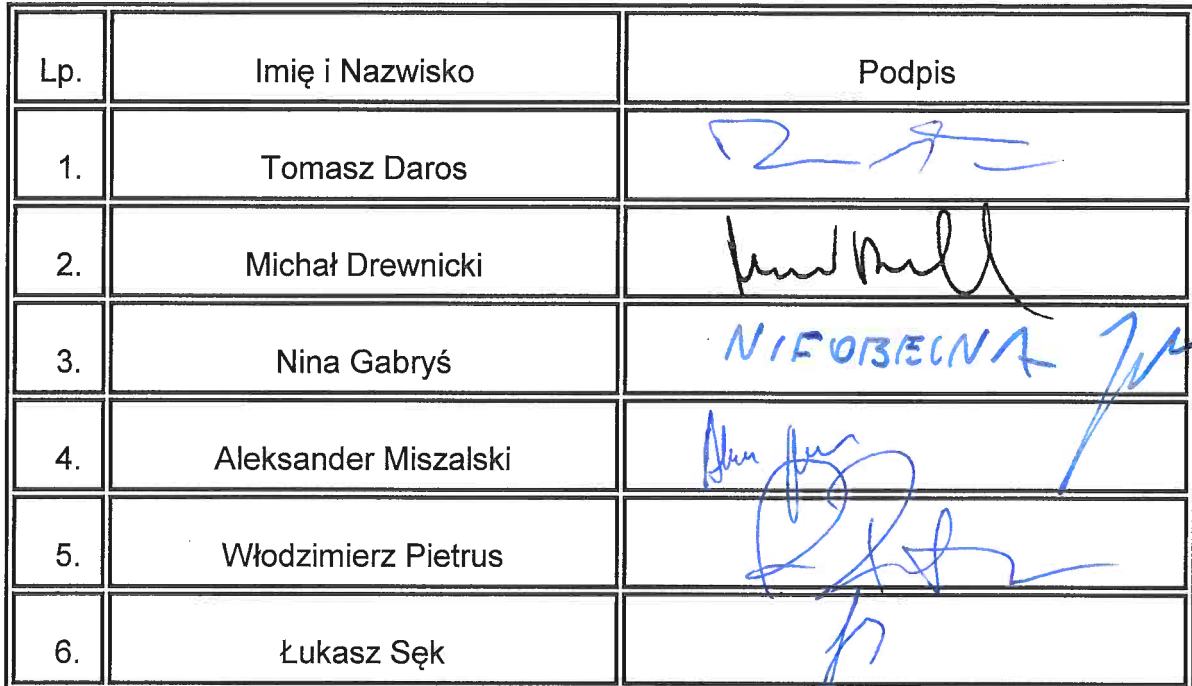 Lp. Imię i Nazwisko Podpis
1. Tomasz Daros
2. Michał Drewnicki
3. Nina Gabryś NIEOBECNA
4. Aleksander Miszalski
5. Włodzimierz Pietrus
6. Łukasz Sęk